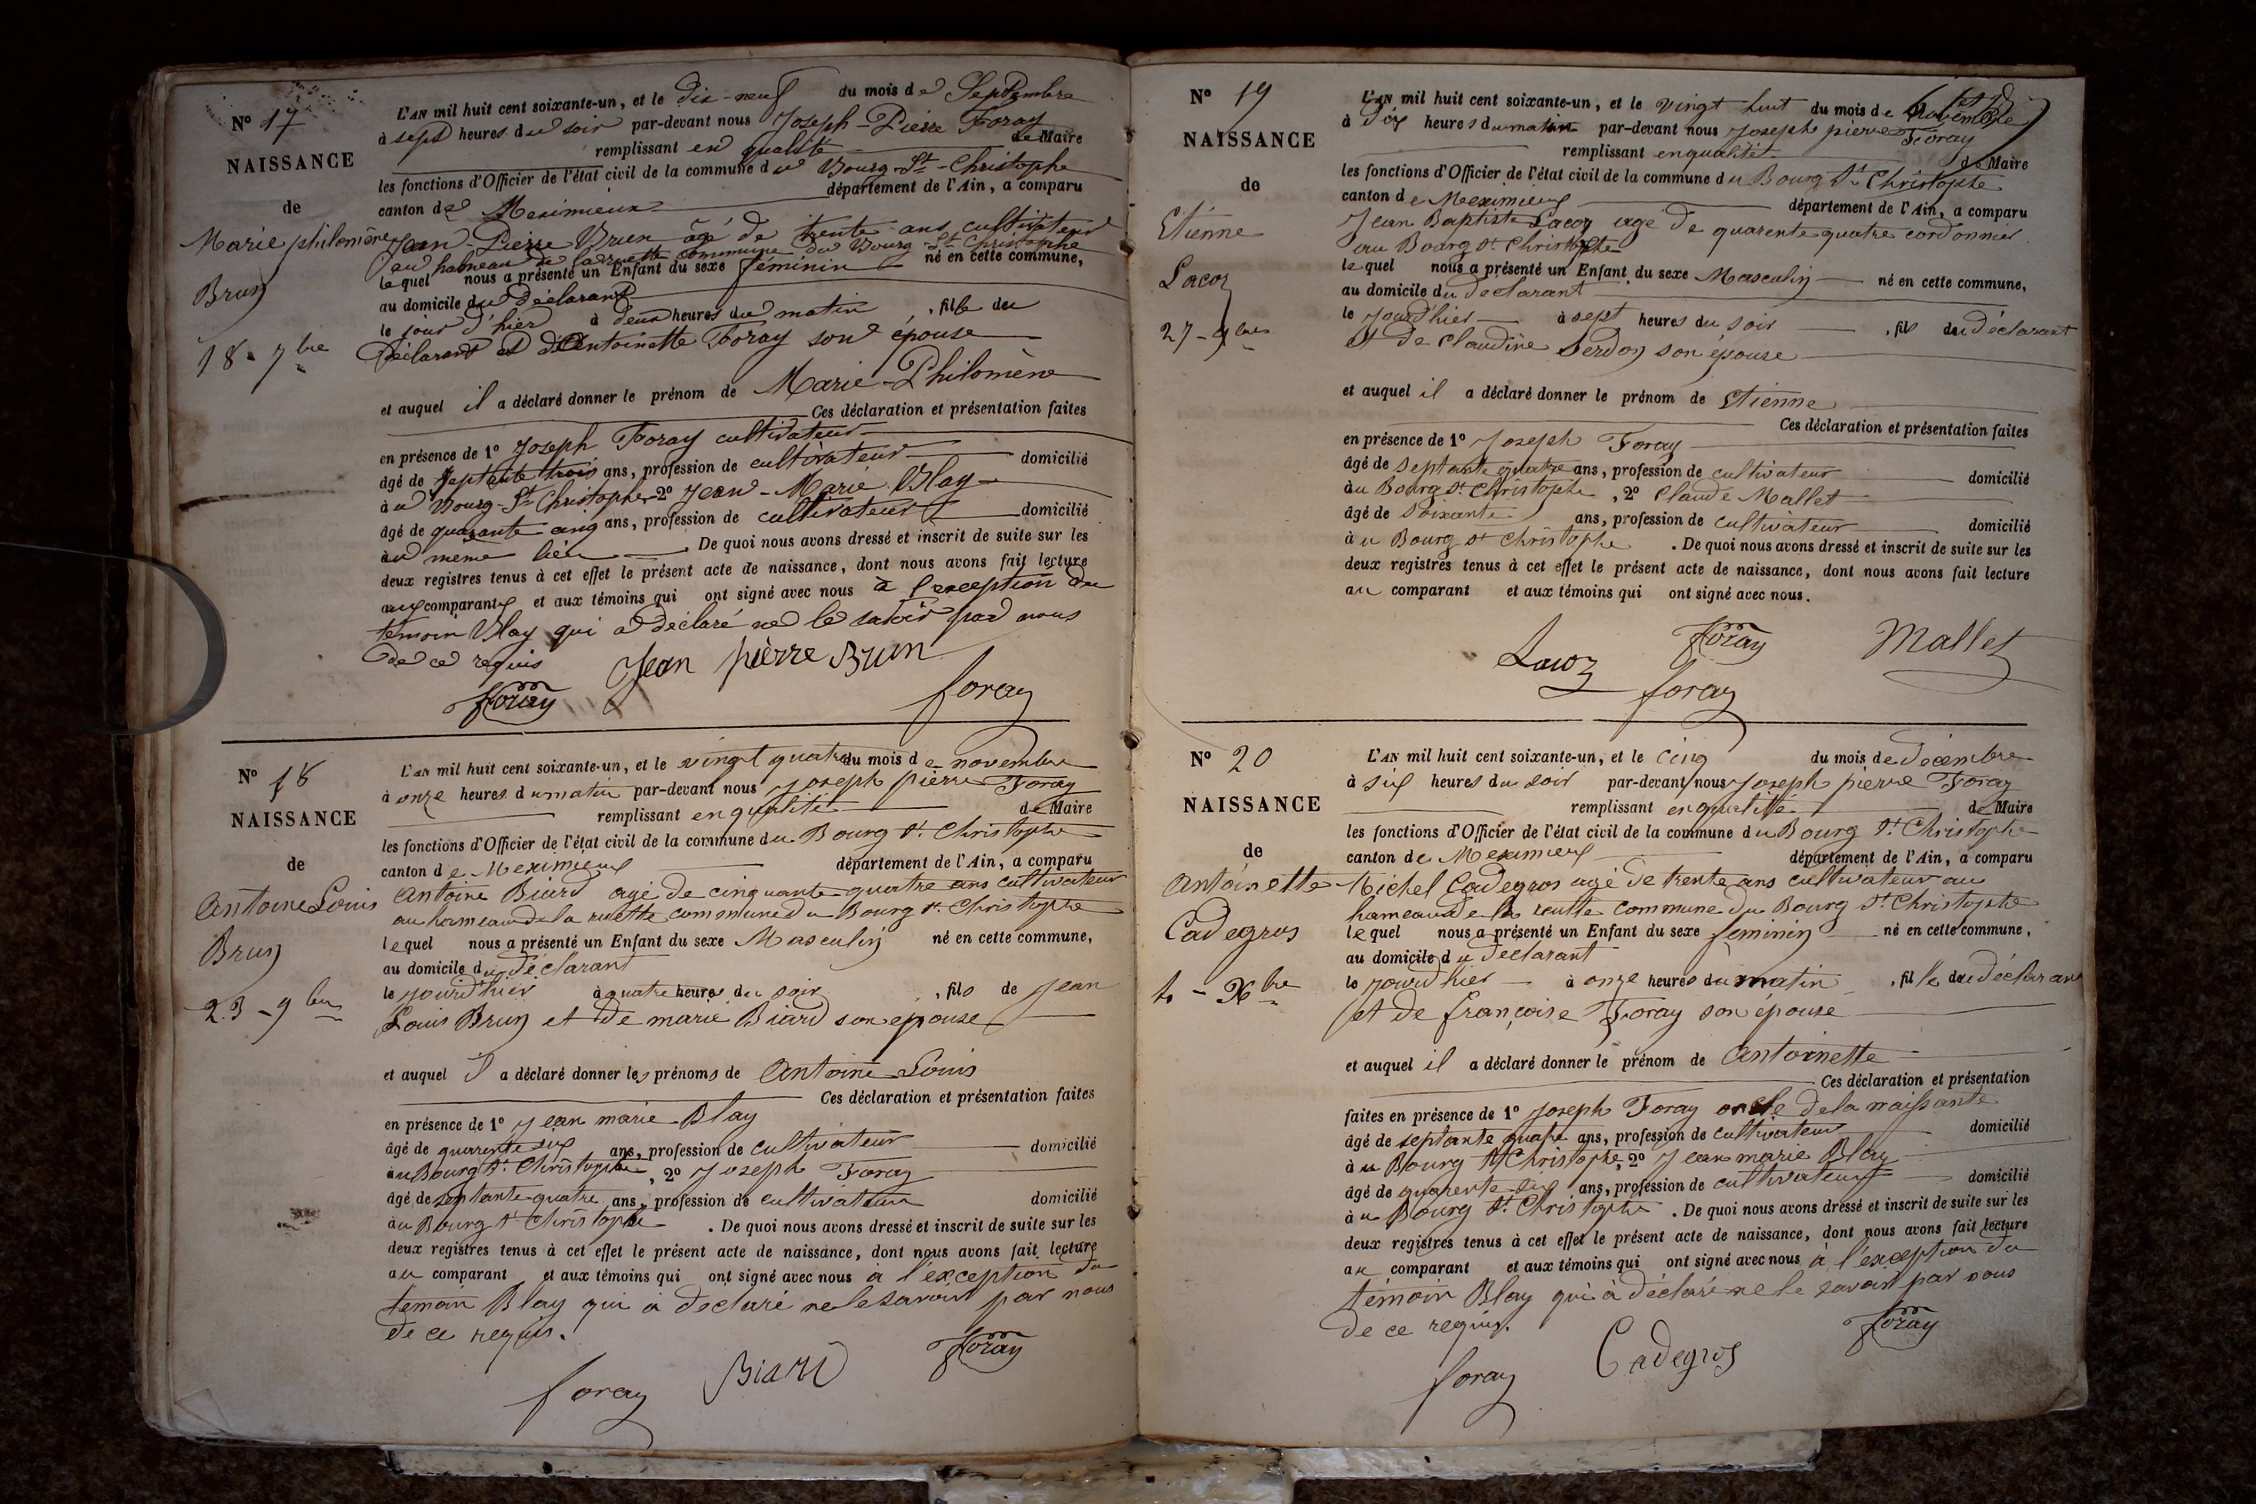 N° 17
NAISSANCE
de
Marie philomène
Brun
18 - 7bre
L'AN mil huit cent soixante-un, et le dix-neuf du mois de Septembre
à sept heures du soir par-devant nous Joseph-Pierre Foray
remplissant en qualité de Maire
les fonctions d'Officier de l'état civil de la commune du Bourg-St-Christophe
canton de Meximieux département de l'Ain, a comparu
Jean-Pierre Brun âgé de trente ans cultivateur
au hameau de la ruette commune du Bourg St Christophe
lequel nous a présenté un Enfant du sexe féminin né en cette commune,
au domicile du Déclarant
le jour d'hier à deux heures du matin, fille du
Déclarant et d'Antoinette Foray son épouse
et auquel il a déclaré donner le prénom de Marie-Philomène
Ces déclaration et présentation faites
en présence de 1° Joseph Foray cultivateur
âgé de septante trois ans, profession de cultivateur domicilié
au Bourg-St-Christophe, 2° Jean-Marie Blay
âgé de quarante cinq ans, profession de cultivateur domicilié
au même lieu. De quoi nous avons dressé et inscrit de suite sur les
deux registres tenus à cet effet le présent acte de naissance, dont nous avons fait lecture
aux comparants et aux témoins qui ont signé avec nous à l'exception du
témoin Blay qui a déclaré ne le savoir par nous
de ce requis
Jean pierre Brun
foray
foray
N° 18
NAISSANCE
de
Antoine Louis
Brun
23 - 9bre
L'AN mil huit cent soixante-un, et le vingt quatre du mois de novembre
à onze heures du matin par-devant nous Joseph pierre Foray
remplissant en qualité de Maire
les fonctions d'Officier de l'état civil de la commune du Bourg St Christophe
canton de Meximieux département de l'Ain, a comparu
Antoine Biard agé de cinquante-quatre ans cultivateur
au hameau de la ruette commune du Bourg St Christophe
lequel nous a présenté un Enfant du sexe Masculin né en cette commune,
au domicile du déclarant
le jourd'hier à quatre heures du soir, fils de Jean
Louis Brun et de marie Biard son épouse
et auquel il a déclaré donner les prénoms de Antoine Louis
Ces déclaration et présentation faites
en présence de 1° Jean marie Blay
âgé de quarente six ans, profession de cultivateur domicilié
au Bourg St Christophe, 2° Joseph Foray
âgé de septante-quatre ans, profession de cultivateur domicilié
au Bourg St Christophe. De quoi nous avons dressé et inscrit de suite sur les
deux registres tenus à cet effet le présent acte de naissance, dont nous avons fait lecture
au comparant et aux témoins qui ont signé avec nous à l'exception du
temoin Blay qui à declaré ne le savoir par nous
de ce requis.
foray
Biard
foray
N° 19
NAISSANCE
de
Etienne
Lacoz
27 - 9bre
L'AN mil huit cent soixante-un, et le vingt huit du mois de Novembre
à dix heures du matin par-devant nous Joseph pierre Foray
remplissant en qualité de Maire
les fonctions d'Officier de l'état civil de la commune du Bourg St Christophe
canton de Meximieux département de l'Ain, a comparu
Jean Baptiste Lacoz agé de quarente quatre cordonnier
au Bourg St Christophe
lequel nous a présenté un Enfant du sexe Masculin né en cette commune,
au domicile du declarant
le jourd'hier à sept heures du soir, fils du déclarant
et de Claudine Serdon son épouse
et auquel il a déclaré donner le prénom de Etienne
Ces déclaration et présentation faites
en présence de 1° Joseph Foray
âgé de septante quatre ans, profession de cultivateur domicilié
au Bourg St Christophe, 2° Claude Mallet
âgé de soixante ans, profession de cultivateur domicilié
à u Bourg St Christophe. De quoi nous avons dressé et inscrit de suite sur les
deux registres tenus à cet effet le présent acte de naissance, dont nous avons fait lecture
au comparant et aux témoins qui ont signé avec nous.
Lacoz
foray
foray
Mallet
N° 20
NAISSANCE
de
Antoinette
Cadegros
4 - Xbre
L'AN mil huit cent soixante-un, et le cinq du mois de Décembre
à six heures du soir par-devant nous Joseph pierre Foray
remplissant en qualité de Maire
les fonctions d'Officier de l'état civil de la commune du Bourg St Christophe
canton de Meximieux département de l'Ain, a comparu
Michel Cadegros agé de trente ans cultivateur au
hameau de la ruette commune du Bourg St Christophe
lequel nous a présenté un Enfant du sexe feminin né en cette commune,
au domicile du declarant
le jourd'hier à onze heures du matin, fille du déclarant
et de françoise Foray son épouse
et auquel il a déclaré donner le prénom de Antoinette
Ces déclaration et présentation
faites en présence de 1° Joseph Foray oncle de la naissante
âgé de septante quatre ans, profession de cultivateur domicilié
à u Bourg St Christophe, 2° Jean marie Blay
âgé de quarente six ans, profession de cultivateur domicilié
à u Bourg St Christophe. De quoi nous avons dressé et inscrit de suite sur les
deux registres tenus à cet effet le présent acte de naissance, dont nous avons fait lecture
au comparant et aux témoins qui ont signé avec nous à l'exception du
témoin Blay qui à déclaré ne le savoir par nous
de ce requis.
foray
Cadegros
foray